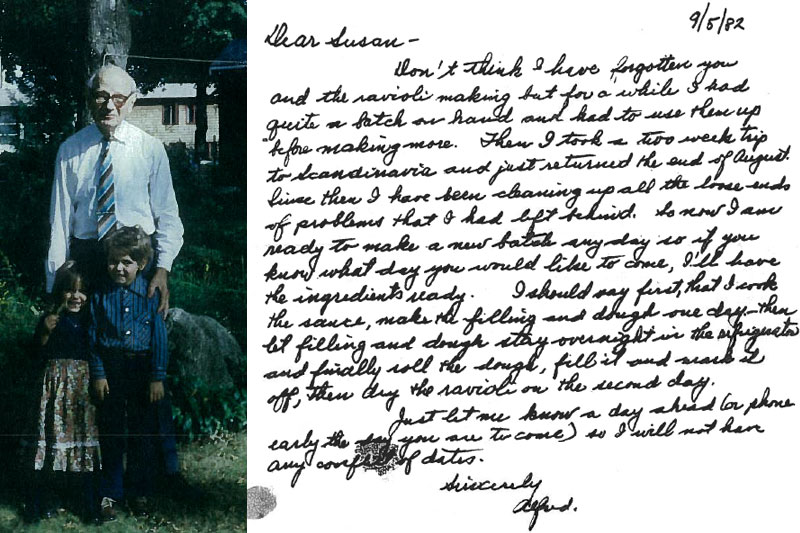 9/5/82
Dear Susan-
Don't think I have forgotten you
and the ravioli making but for a while I had
quite a batch on hand and had to use them up
before making more. Then I took a two week trip
to Scandinavia and just returned the end of August.
Since then I have been cleaning up all the loose ends
of problems that I had left behind. So now I am
ready to make a new batch any day so if you
know what day you would like to come, I'll have
the ingredients ready. I should say first, that I cook
the sauce, make the filling and dough one day - then
let filling and dough stay overnight in the refrigerator
and finally roll the dough, fill it and mark it
off, then dry the ravioli on the second day.
Just let me know a day ahead (or phone
early the day you are to come) so I will not have
any of dates.
Sincerely
Alfred.